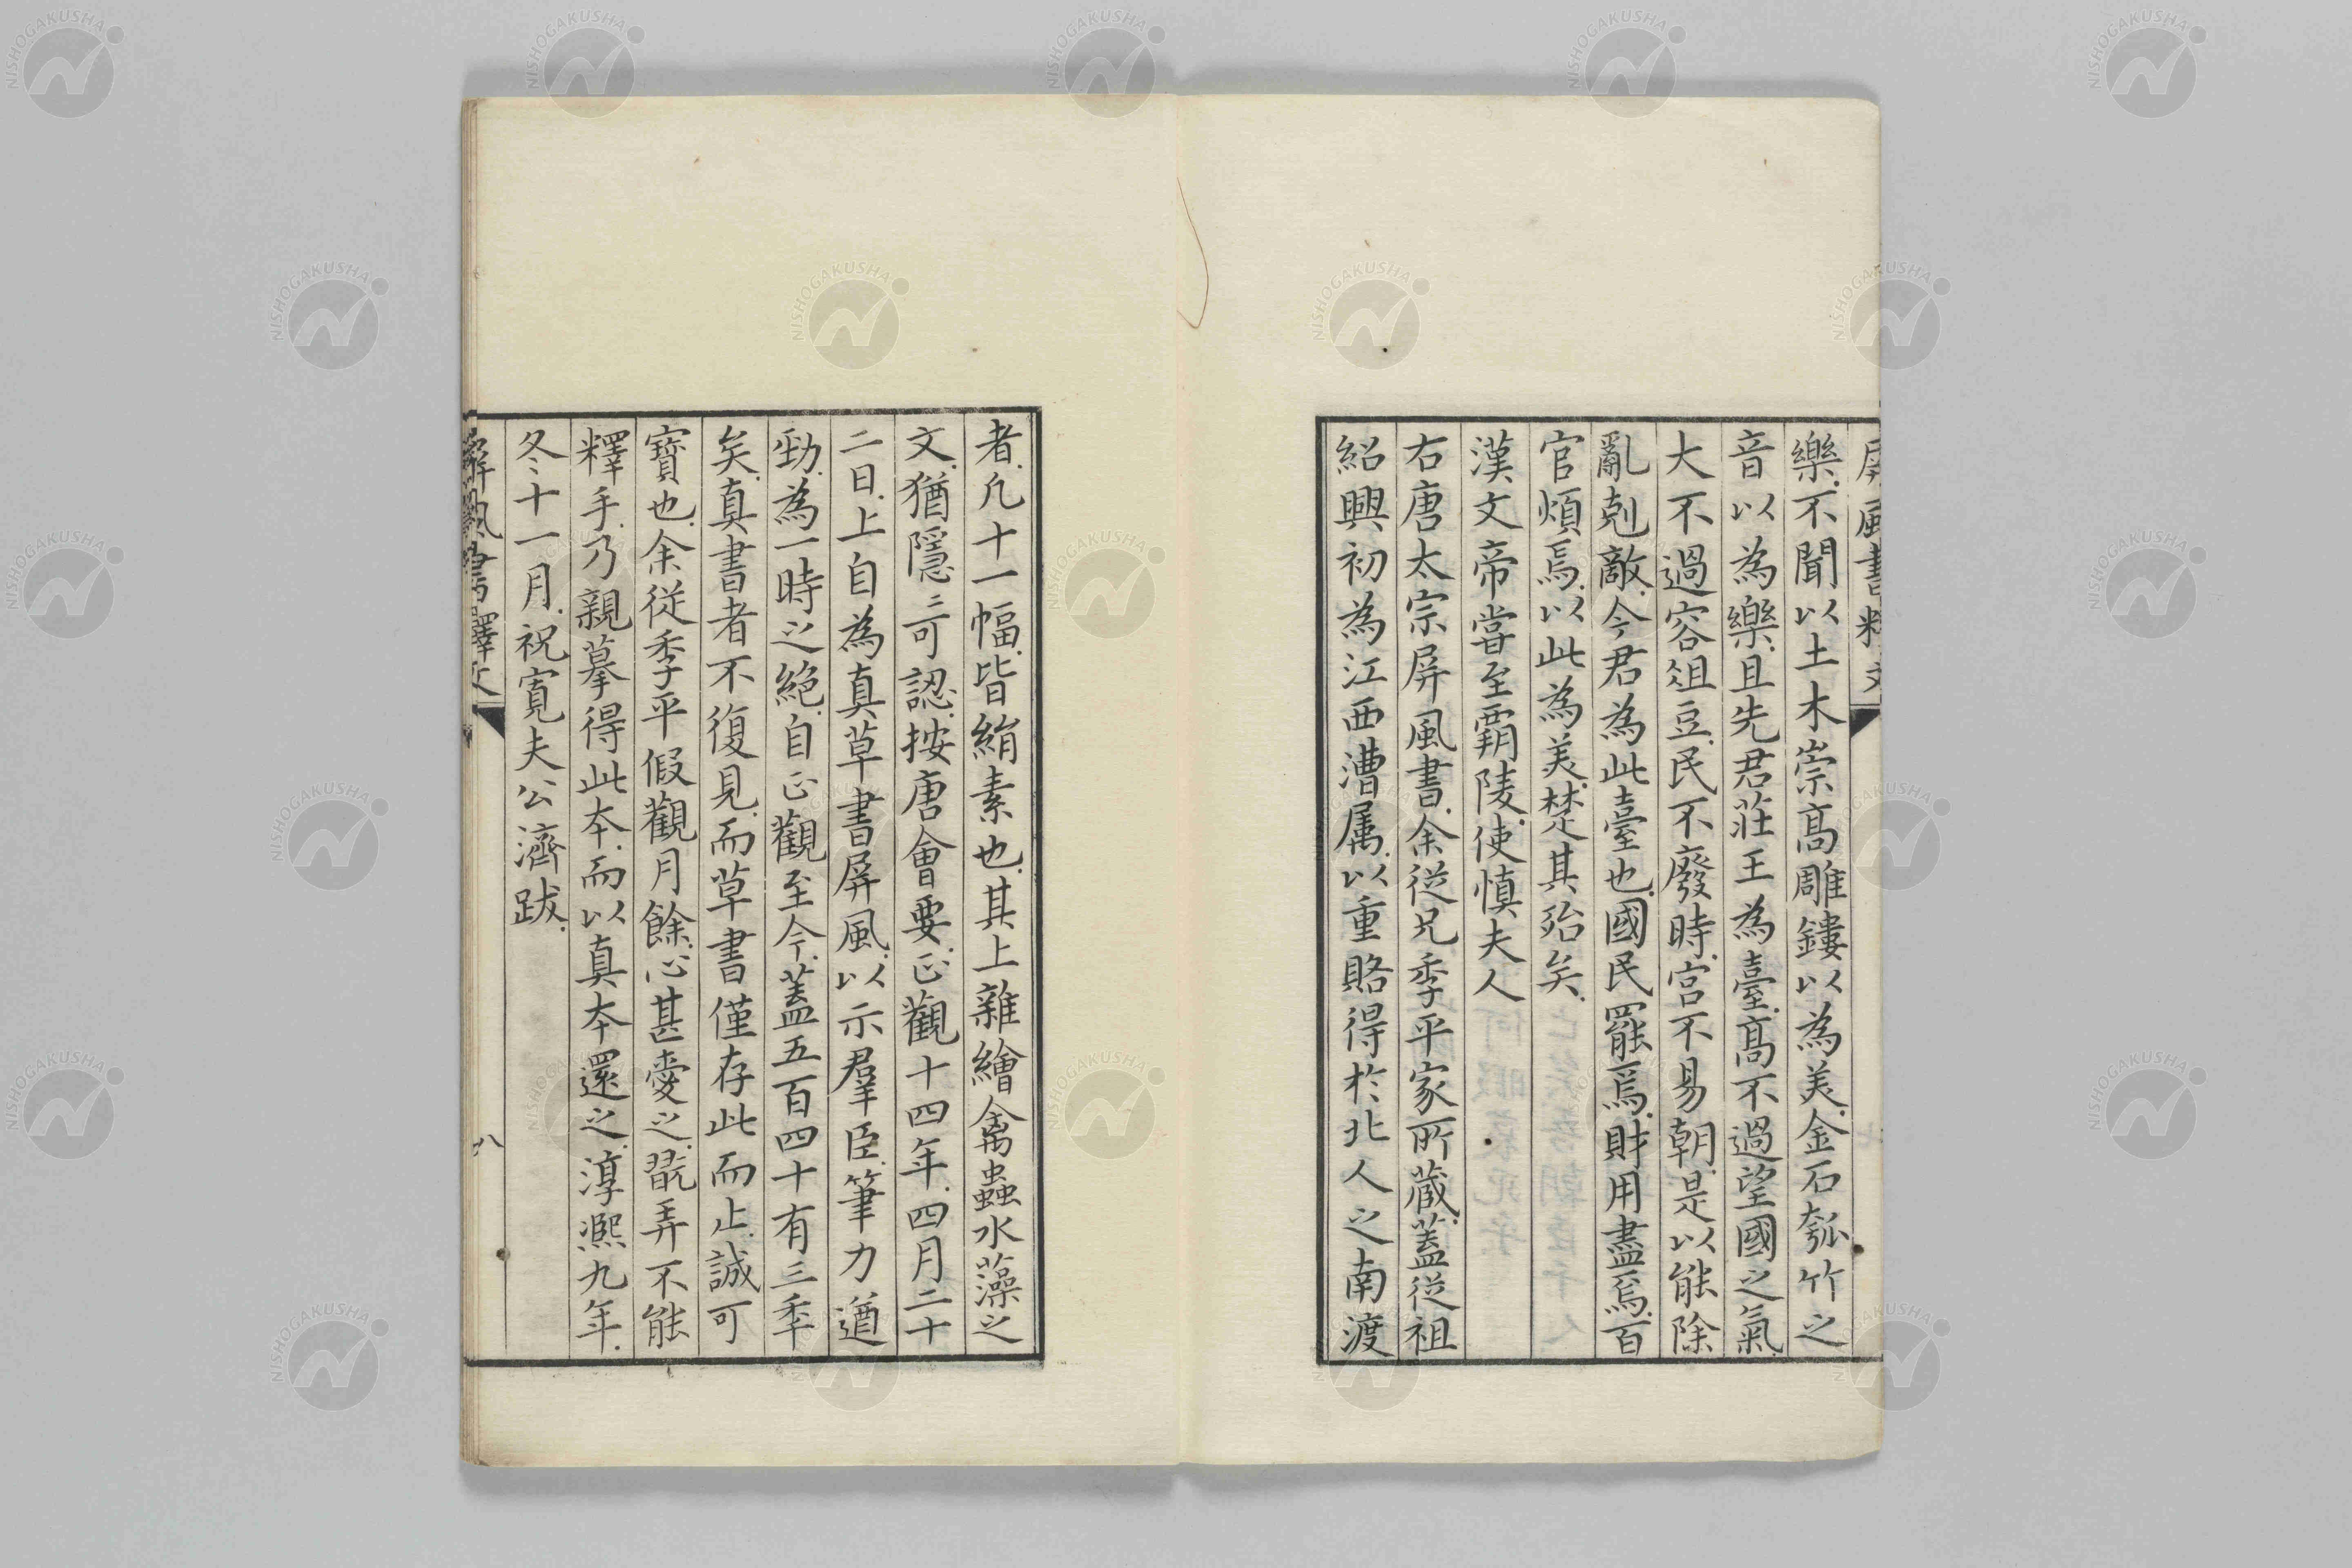 屏風書釋文
樂.不聞以土木崇高雕鏤以為美.金石匏竹之
音以為樂.且先君莊王為臺.高不過望國之氣.
大不過容俎豆.民不廢時.宫不易朝.是以能除
亂剋敵.今君為此臺也.國民罷焉.財用盡焉.百
官煩焉.以此為美.楚其殆矣.
漢文帝嘗至霸陵.使慎夫人
右唐太宗屏風書.余従兄季平家所蔵.蓋従祖
紹興初為江西漕属.以重賂得於北人之南渡
者.凡十一幅.皆絹素也.其上雜繪禽蟲水藻之
文.猶隱〻可認.按唐會要.㱏觀十四年.四月二十
二日.上自為真草書屏風.以示羣臣.筆力遒
勁.為一時之絶.自㱏觀至今.蓋五百四十有三季
矣.真書者不復見.而草書僅存此而止.誠可
寳也.余従季平假觀月餘.心甚愛之.翫弄不能
釋手.乃親摹得此本.而以真本還之.淳熈九年.
冬十一月.祝寛夫公濟跋.
屏風書釋文
八
NISHOGAKUSHA